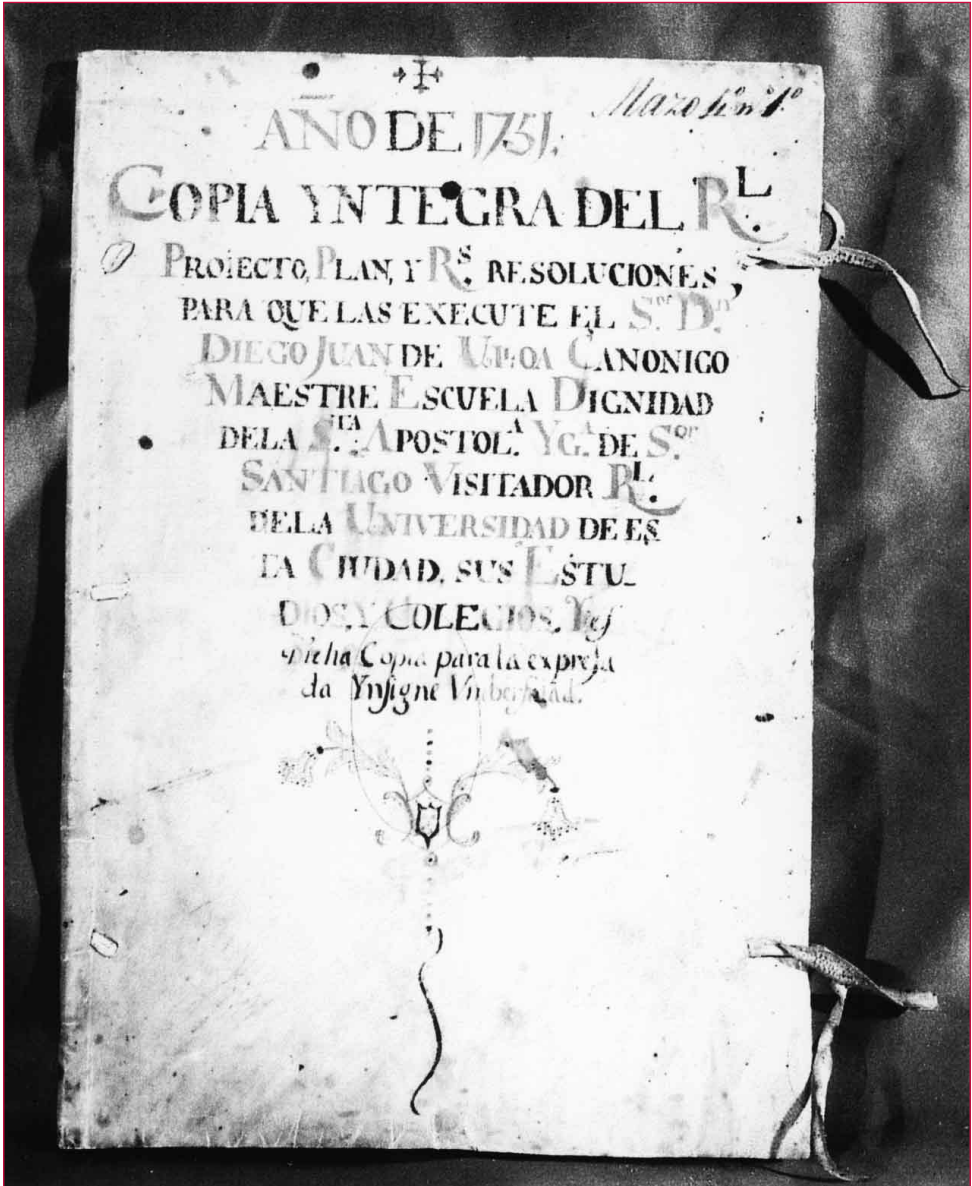 Mazo
AÑO DE 1751.
COPIA YNTEGRA DEL R.L
PROIECTO, PLAN, Y R.S RESOLUCIONES,
PARA QUE LAS EXECUTE EL S.or D.n
DIEGO JUAN DE ULLOA CANONIGO
MAESTRE ESCUELA DIGNIDAD
DELA S.TA APOSTOL.A YG.A DE S.or
SANTIAGO VISITADOR R.L
DELA UNIVERSIDAD DE ES
TA CIUDAD, SUS ESTU-
DIOS, Y COLEGIOS. Y es
Dicha Copia para la expresa
da Ynsigne Vnibersidad.